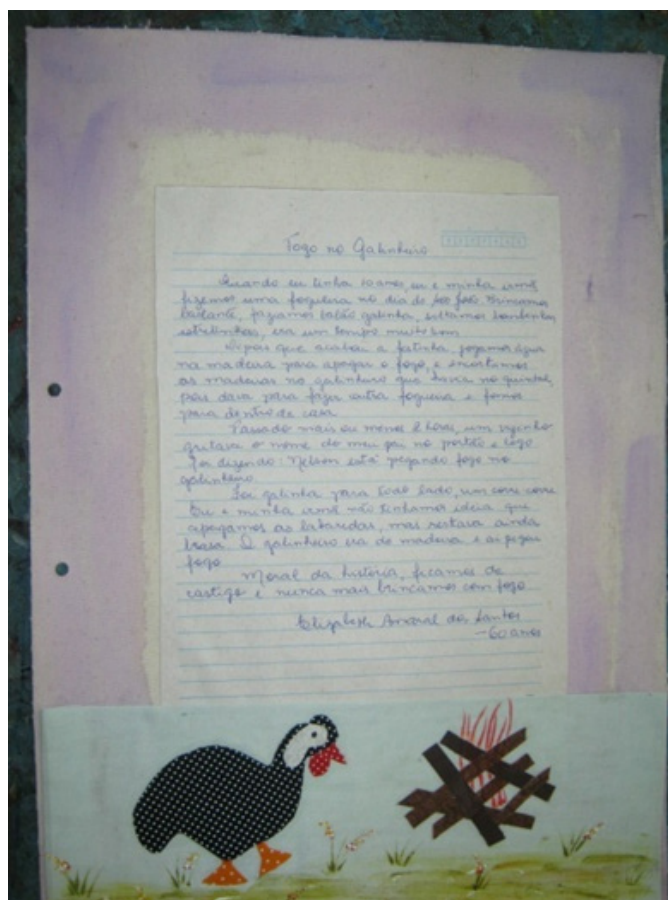 Fogo no Galinheiro
Quando eu tinha 10 anos, eu e minha irmã
fizemos uma fogueira no dia de São João. Brincamos
bastante, balão galinha, soltamos bombinhas,
estrelinhas, era um tempo muito bom
Depois que acabou a festinha, jogamos água
na madeira para apagar o fogo, e encostamos
as madeiras no galinheiro que havia no quintal,
pois dava para fazer outra fogueira e fomos
para dentro de casa
Passado mais ou menos 2 horas, um vizinho
gritava o nome do meu pai no portão e logo
foi dizendo: Nelson está pegando fogo no
galinheiro
Foi galinha para todo lado, um corre corre
Eu e minha irmã não tinhamos idéia que
apagamos as labaredas, mas restava ainda
brasa. O galinheiro era de madeira e ai pegou
fogo
Moral da história, ficamos de
castigo e nunca mais brincamos com fogo
Elizabeth Amaral dos Santos
- 60 anos